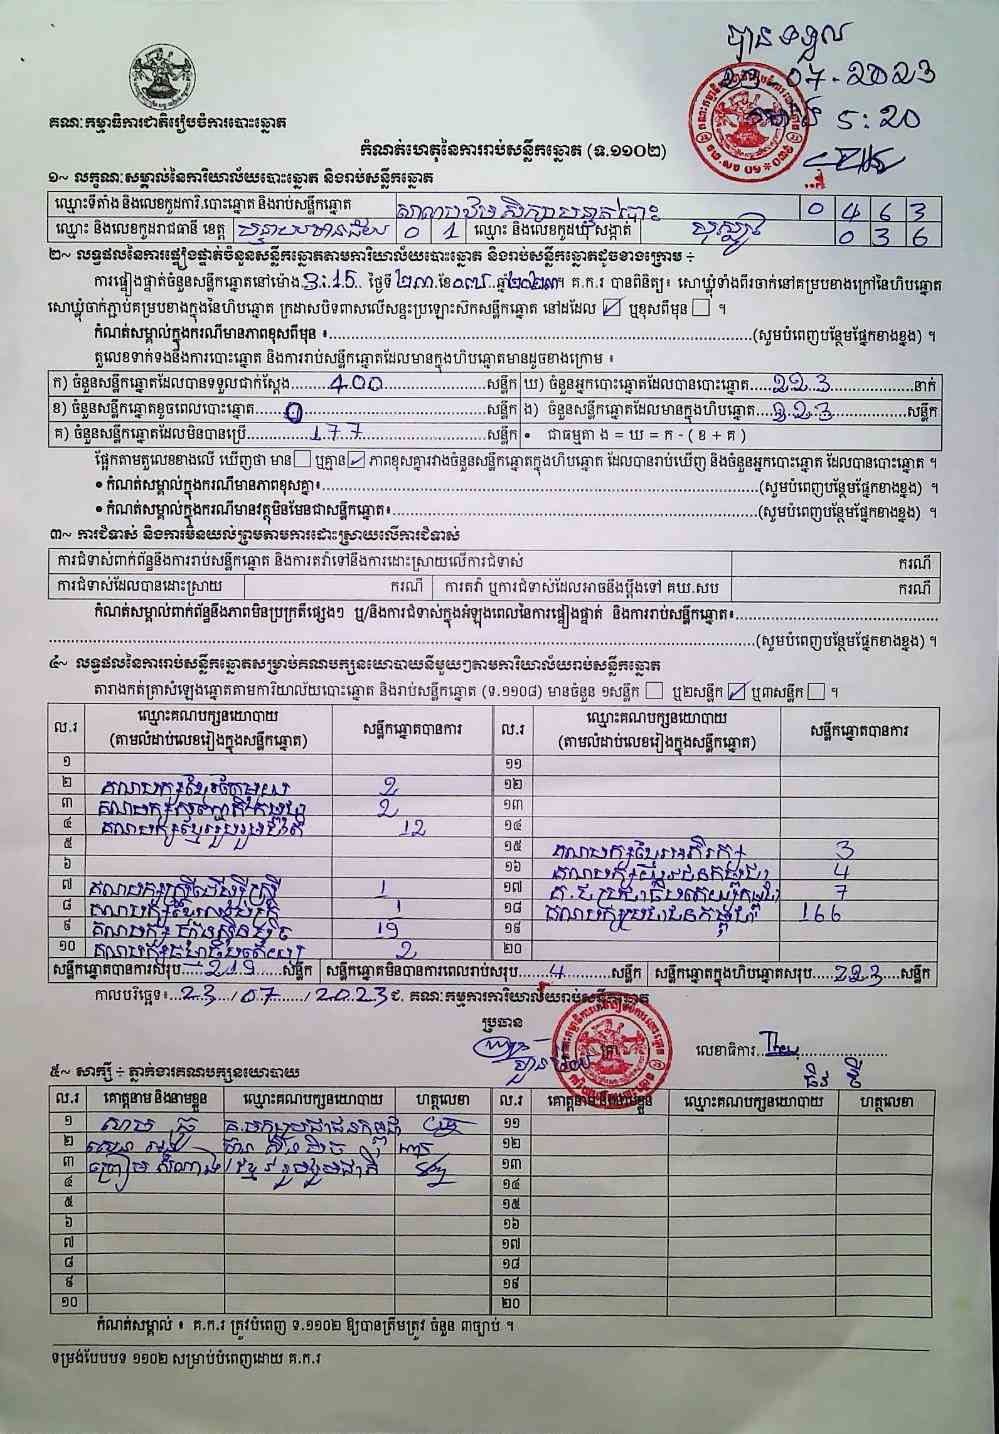 បានទទួល
23-07-2023
ម៉ោង 5:20
គណៈកម្មាធិការជាតិរៀបចំការបោះឆ្នោត
កំណត់ហេតុនៃការរាប់សន្លឹកឆ្នោត (ទ.១១០២)
១~ លក្ខណៈសម្គាល់នៃការិយាល័យបោះឆ្នោត និងរាប់សន្លឹកឆ្នោត
ឈ្មោះទីតាំង និងលេខកូដការិ.បោះឆ្នោត និងរាប់សន្លឹកឆ្នោត 0 4 6 3
ឈ្មោះ និងលេខកូដរាជធានី ខេត្ត បន្ទាយមានជ័យ 0 1 ឈ្មោះ និងលេខកូដឃុំ សង្កាត់ 0 3 6
២~ លទ្ធផលនៃការផ្ទៀងផ្ទាត់ចំនួនសន្លឹកឆ្នោតតាមការិយាល័យបោះឆ្នោត និងរាប់សន្លឹកឆ្នោតដូចខាងក្រោម ÷
ការផ្ទៀងផ្ទាត់ចំនួនសន្លឹកឆ្នោតនៅម៉ោង 3:15 ថ្ងៃទី ២៣ ខែ ០៧ ឆ្នាំ ២០២៣ ។ គ.ក.រ បានពិនិត្យ៖ សោឃ្លុំទាំងពីរចាក់នៅគម្របខាងក្រៅនៃហិបឆ្នោត
សោឃ្លុំចាក់ភ្ជាប់គម្របខាងក្នុងនៃហិបឆ្នោត ក្រដាសបិទពាសលើសន្ទះប្រឡោះស៊កសន្លឹកឆ្នោត នៅដដែល ☑ ឬខុសពីមុន ☐ ។
កំណត់សម្គាល់ក្នុងករណីមានភាពខុសពីមុន ៖ (សូមបំពេញបន្ថែមផ្នែកខាងខ្នង) ។
តួលេខទាក់ទងនឹងការបោះឆ្នោត និងការរាប់សន្លឹកឆ្នោតដែលមានក្នុងហិបឆ្នោតមានដូចខាងក្រោម ៖
ក) ចំនួនសន្លឹកឆ្នោតដែលបានទទួលជាក់ស្តែង 400 សន្លឹក ឃ) ចំនួនអ្នកបោះឆ្នោតដែលបានបោះឆ្នោត 223 នាក់
ខ) ចំនួនសន្លឹកឆ្នោតខូចពេលបោះឆ្នោត 0 សន្លឹក ង) ចំនួនសន្លឹកឆ្នោតដែលមានក្នុងហិបឆ្នោត 223 សន្លឹក
គ) ចំនួនសន្លឹកឆ្នោតដែលមិនបានប្រើ 177 សន្លឹក • ជាធម្មតា ង = ឃ = ក - ( ខ + គ )
ផ្អែកតាមតួលេខខាងលើ ឃើញថា មាន ☐ ឬគ្មាន ☑ ភាពខុសគ្នារវាងចំនួនសន្លឹកឆ្នោតក្នុងហិបឆ្នោត ដែលបានរាប់ឃើញ និងចំនួនអ្នកបោះឆ្នោត ដែលបានបោះឆ្នោត ។
• កំណត់សម្គាល់ក្នុងករណីមានភាពខុសគ្នា៖ (សូមបំពេញបន្ថែមផ្នែកខាងខ្នង) ។
• កំណត់សម្គាល់ក្នុងករណីមានវត្ថុមិនមែនជាសន្លឹកឆ្នោត៖ (សូមបំពេញបន្ថែមផ្នែកខាងខ្នង) ។
៣~ ការជំទាស់ និងការមិនយល់ព្រមតាមការដោះស្រាយលើការជំទាស់
ការជំទាស់ពាក់ព័ន្ធនឹងការរាប់សន្លឹកឆ្នោត និងការតវ៉ាទៅនឹងការដោះស្រាយលើការជំទាស់ ករណី
ការជំទាស់ដែលបានដោះស្រាយ ករណី ការតវ៉ា ឬការជំទាស់ដែលអាចនឹងប្តឹងទៅ គឃ.សប ករណី
កំណត់សម្គាល់ពាក់ព័ន្ធនឹងភាពមិនប្រក្រតីផ្សេងៗ ឬ/និងការជំទាស់ក្នុងអំឡុងពេលនៃការផ្ទៀងផ្ទាត់ និងការរាប់សន្លឹកឆ្នោត៖
(សូមបំពេញបន្ថែមផ្នែកខាងខ្នង) ។
៤~ លទ្ធផលនៃការរាប់សន្លឹកឆ្នោតសម្រាប់គណបក្សនយោបាយនីមួយៗតាមការិយាល័យរាប់សន្លឹកឆ្នោត
តារាងកត់ត្រាសំឡេងឆ្នោតតាមការិយាល័យបោះឆ្នោត និងរាប់សន្លឹកឆ្នោត (ទ.១១០៨) មានចំនួន ១សន្លឹក ☐ ឬ២សន្លឹក ☑ ឬ៣សន្លឹក ☐ ។
ល.រ ឈ្មោះគណបក្សនយោបាយ (តាមលំដាប់លេខរៀងក្នុងសន្លឹកឆ្នោត) សន្លឹកឆ្នោតបានការ ល.រ ឈ្មោះគណបក្សនយោបាយ (តាមលំដាប់លេខរៀងក្នុងសន្លឹកឆ្នោត) សន្លឹកឆ្នោតបានការ
១ ១១
២ គណបក្សខ្មែរតែមួយ 2 ១២
៣ គណបក្សសញ្ជាតិកម្ពុជា 2 ១៣
៤ គណបក្សខ្មែររួបរួមជាតិ 12 ១៤
៥ ១៥ គណបក្សខ្មែរអភិរក្ស 3
៦ ១៦ គណបក្ស 4
៧ គណបក្ស 1 ១៧ 7
៨ គណបក្ស 1 ១៨ គណបក្សប្រជាជនកម្ពុជា 166
៩ គណបក្ស ហ៊្វុនស៊ិនប៉ិច 19 ១៩
១០ គណបក្សធម្មាធិបតេយ្យ 2 ២០
សន្លឹកឆ្នោតបានការសរុប 219 សន្លឹក សន្លឹកឆ្នោតមិនបានការពេលរាប់សរុប 4 សន្លឹក សន្លឹកឆ្នោតក្នុងហិបឆ្នោតសរុប 223 សន្លឹក
កាលបរិច្ឆេទ៖ 23/07/2023 ជ. គណៈកម្មការការិយាល័យរាប់សន្លឹកឆ្នោត
ប្រធាន
លេខាធិការ
៥~ សាក្សី ÷ ភ្នាក់ងារគណបក្សនយោបាយ
ល.រ គោត្តនាម និងនាមខ្លួន ឈ្មោះគណបក្សនយោបាយ ហត្ថលេខា ល.រ គោត្តនាម និងនាមខ្លួន ឈ្មោះគណបក្សនយោបាយ ហត្ថលេខា
១ គ.បក្សប្រជាជនកម្ពុជា ១១
២ ១២
៣ ខ្មែររួបរួមជាតិ ១៣
៤ ១៤
៥ ១៥
៦ ១៦
៧ ១៧
៨ ១៨
៩ ១៩
១០ ២០
កំណត់សម្គាល់ ៖ គ.ក.រ ត្រូវបំពេញ ទ.១១០២ ឱ្យបានត្រឹមត្រូវ ចំនួន ៣ច្បាប់ ។
ទម្រង់បែបបទ ១១០២ សម្រាប់បំពេញដោយ គ.ក.រ